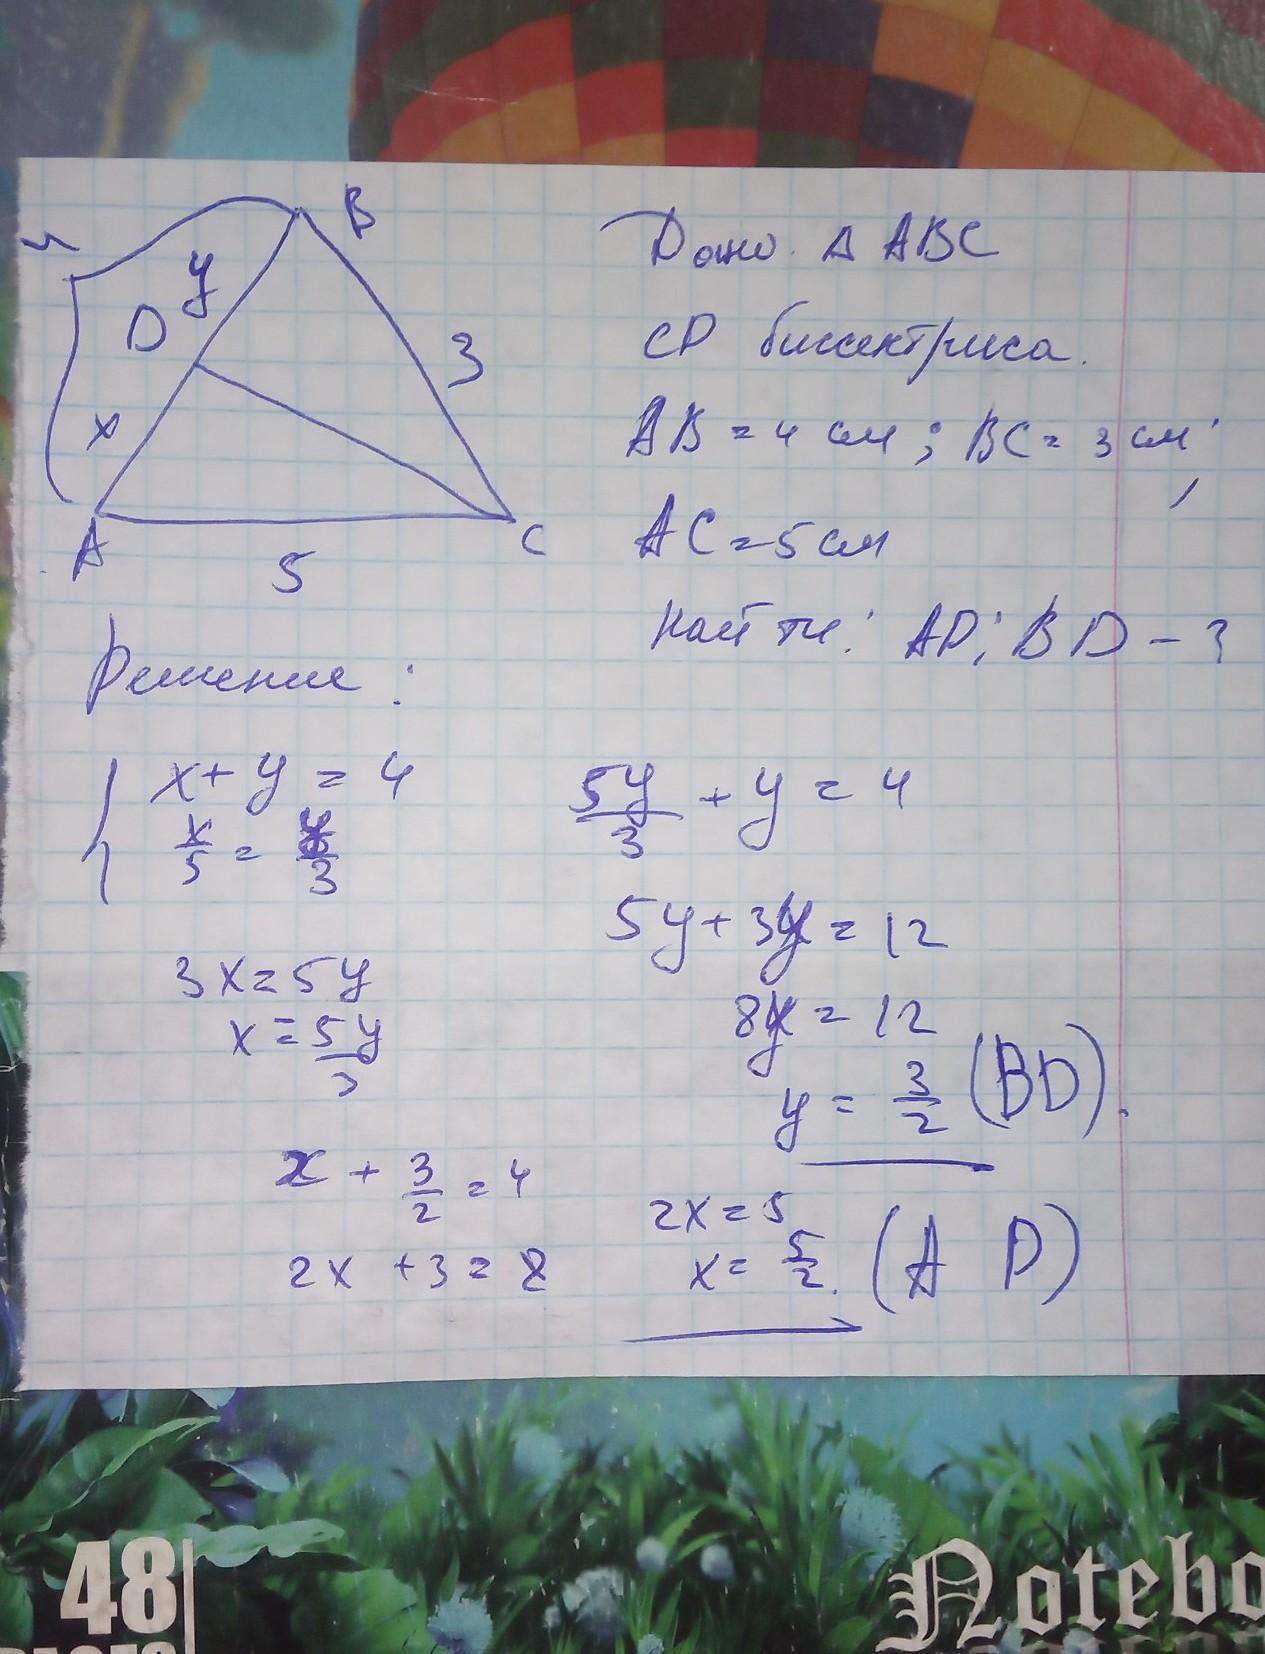 4
B
y
D
x
3
A
C
5
Дано: Δ ABC
CD биссектриса.
AB = 4 см; BC = 3 см;
AC = 5 см
Найти: AD; BD - ?
Решение:
x + y = 4
x/5 = y/3
3x = 5y
x = 5y/3
5y/3 + y = 4
5y + 3y = 12
8y = 12
y = 3/2 (BD).
x + 3/2 = 4
2x + 3 = 8
2x = 5
x = 5/2. (AD)
48
Notebo